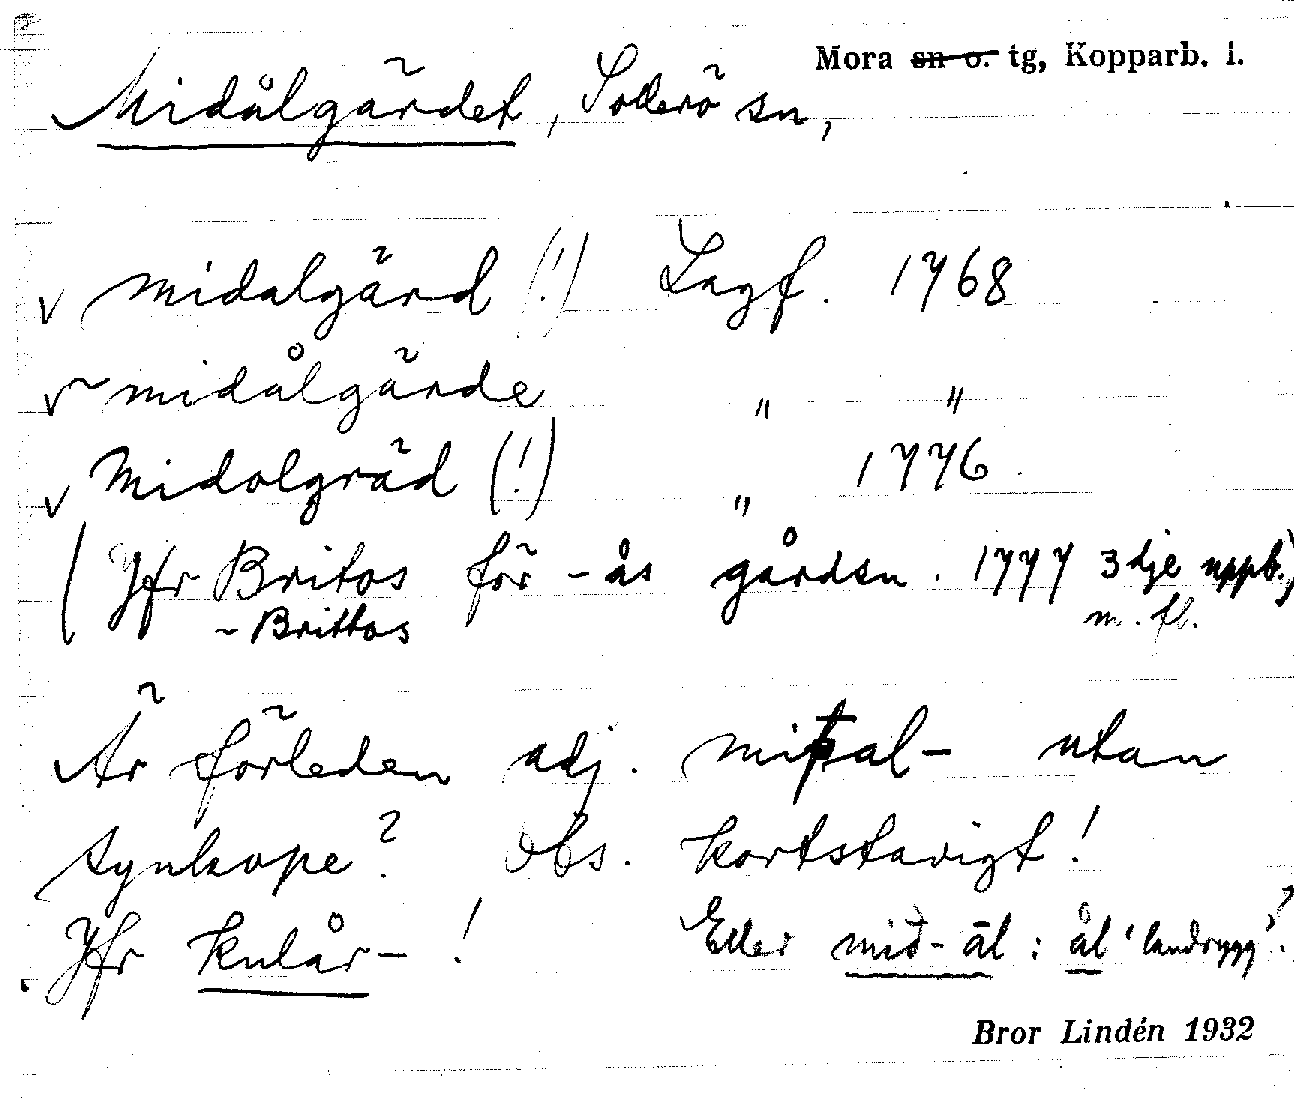 Mora sn o. tg, Kopparb. l.
Midålgärdet, Sollerö sn,
v midalgärd (!) Lagf. 1768
v ~ midålgärde " "
v Midolgräd (!) " 1776
(Jfr Britos för -ås gårdsn. 1777 3dje uppb.,
~ Brittos m. fl.
Är förleden adj. miþal- utan
synkope? Obs. kortstavigt!
Jfr kulår- ! Eller mið-āl : ål 'landrygg'?
Bror Lindén 1932